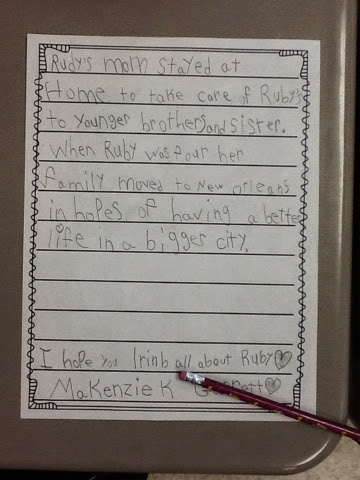 Rudy's mom stayed at
Home to take care of Ruby's
to younger brothers and sister.
When Ruby was four her
family moved to New orleans
in hopes of having a better
life in a bigger city.
I hope you lrinb all about Ruby
Makenzie K